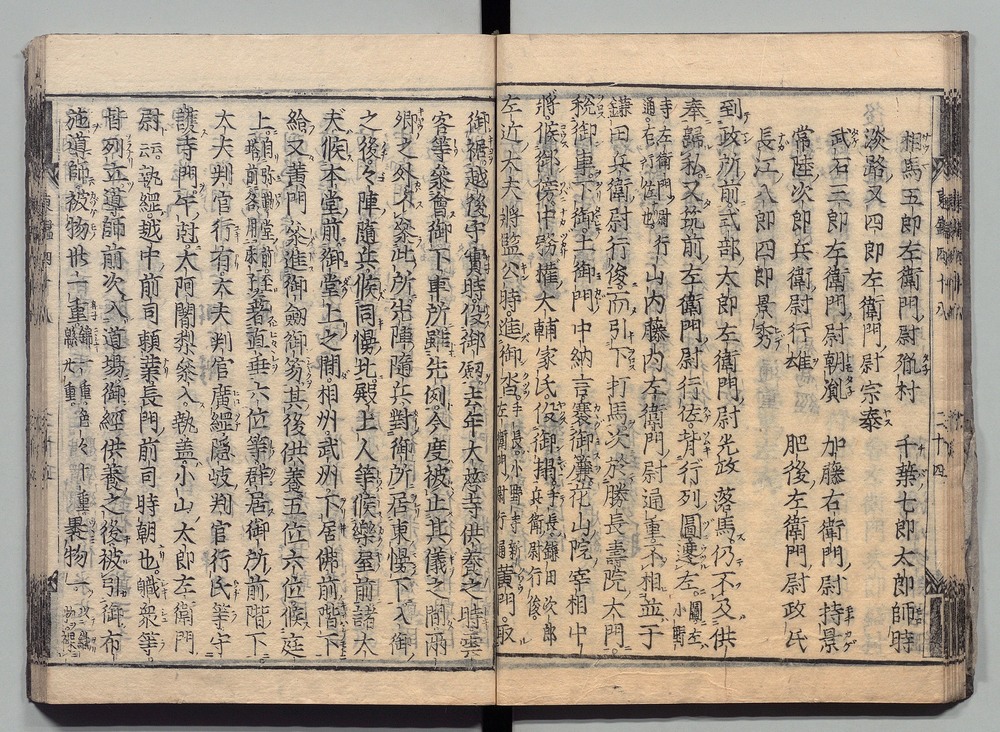 相馬五郎左衛門尉胤村 千葉七郎太郎師時
淡路又四郎左衛門尉宗泰
武石三郎左衛門尉朝胤 加藤右衛門尉持景
常陸次郎兵衛尉行雄 肥後左衛門尉政氏
長江八郎四郎景秀
到政所前式部太郎左衛門尉光政落馬仍不及供
奉歸私又筑前左衛門尉行佐背行列圖遷左
寺左衛門尉行山内藤内左衛門尉通重不相並于
鎌田兵衛尉行俊而引下打馬次於勝長壽院大門
税御車下御土御門中納言褰御簾花山院宰相中
將候御傍中務權大輔家氏役御榻
左近大夫將監公時進御沓黄門取
御裾越後守實時役御劔去年大慈寺供養之時雲
客等參會御下車所雖先例今度被止其儀之間兩
卿之外不參此所先陣隨兵對御所居東幔下入御
之後々陣隨兵候同幔北殿上人等候樂屋前諸大
夫候本堂前御堂上之間相州武州下居佛前階下
給又黄門參進御劔御笏其後供養五位六位候庭
上着直垂六位等群居御所前階下
大夫判官行有大夫判官廣綱隱岐判官行氏等守
護寺門午尅大阿闍梨參入執盖小山太郎左衛門
尉云云執經越中前司頼業長門前司時朝也職衆等
皆列立導師前次入道場御經供養之後被引御布
施導師被物卅一重裹物一